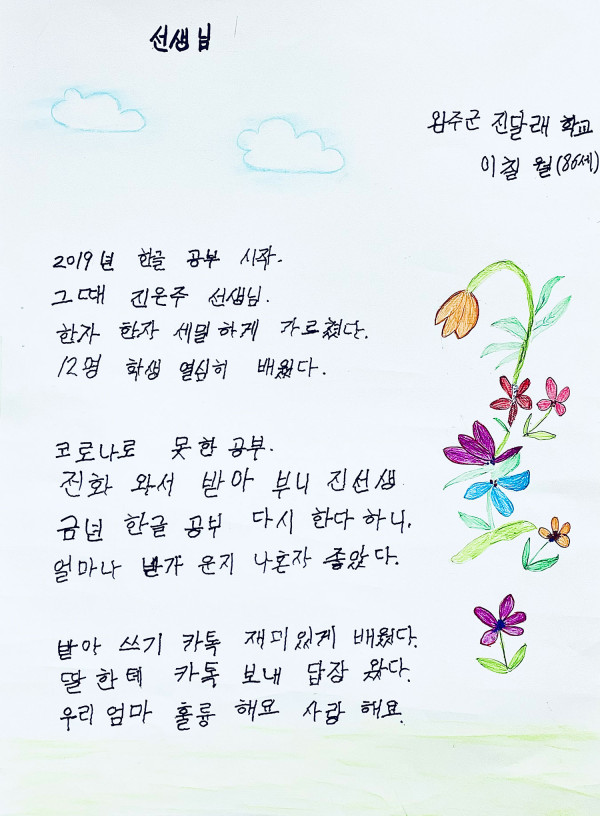 선생님
완주군 진달래 학교
이칠월 (86세)
2019년 한글 공부 시작.
그때 진온주 선생님.
한자 한자 세밀하게 가르쳤다.
12명 학생 열심히 배웠다.
코로나로 못한 공부.
전화 와서 받아 부니 진선생
금년 한글 공부 다시 한다 하니.
얼마나 반가운지 나혼자 좋았다.
받아 쓰기 카톡 재미있게 배웠다.
딸한테 카톡 보내 답장 왔다.
우리 엄마 훌륭해요 사랑해요.